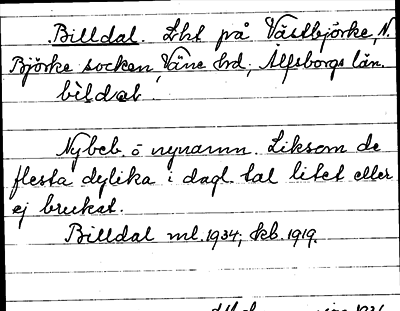 Billdal. Lht på Västbjörke, N.
Björke socken, Väne hrd, Älfsborgs län.
bildal.
Nybeb. o nynamn. Liksom de
flesta dylika i dagl. tal litet eller
ej brukat.
Billdal ml. 1934; kb. 1919.